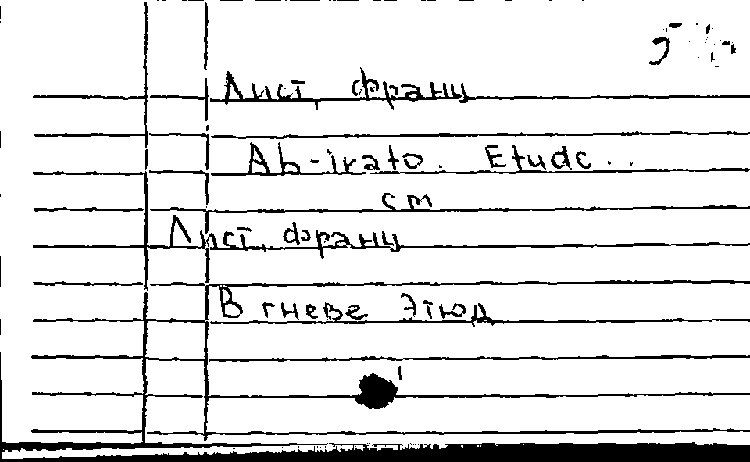 Лист, Франц
Ab-irato. Etude..
см
Лист, Франц
В гневе Этюд